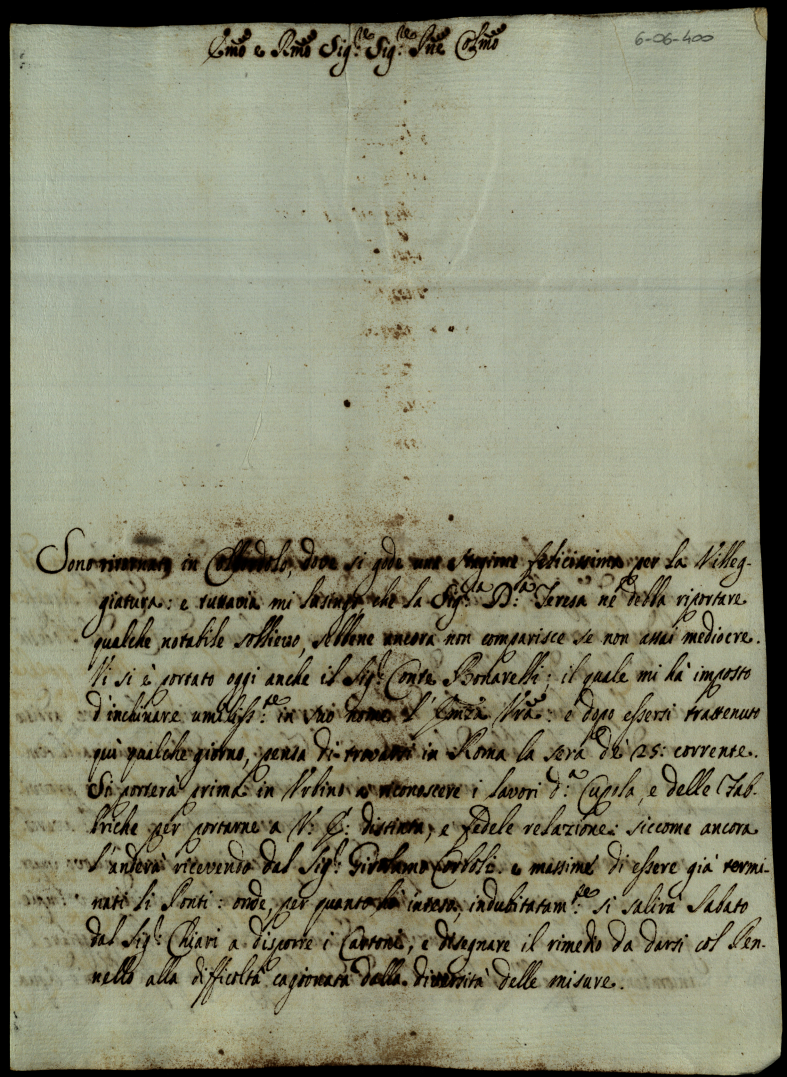 Emo e Rmo Sig.re Sig.re Pne Colmo
6-06-400
Sono ritornato in Col, dove si gode una stagione felicissima per la Villeg-
giatura: e tuttavia mi lusingo che la Sig.ra D.na Teresa ne debba riportare
qualche notabile sollievo, sebbene ancora non comparisce se non assai mediocre.
Vi si è portato oggi anche il Sig.r Conte Bonarelli; il quale mi hà imposto
d'inchinare umiliss.te in suo nome l'Emza Vra: e dopo essersi trattenuto
quì qualche giorno, pensa di trovarsi in Roma la sera de 25: corrente.
Si porterà prima in Urbino a riconoscere i lavori d.a Cupola, e delle Fab-
briche per portarne a V: E: distinta, e fedele relazione: siccome ancora
l'anderà ricevendo dal Sig.r Girolamo Corboli: e massime di essere già termi-
nati li Ponti: onde, per quanto hò inteso, indubitatam.te si salirà Sabato
dal Sig.r Chiari a disporre i Cartoni, e disegnare il rimedio da darsi col Pen-
nello alla difficoltà cagionata dalla diversità delle misure.